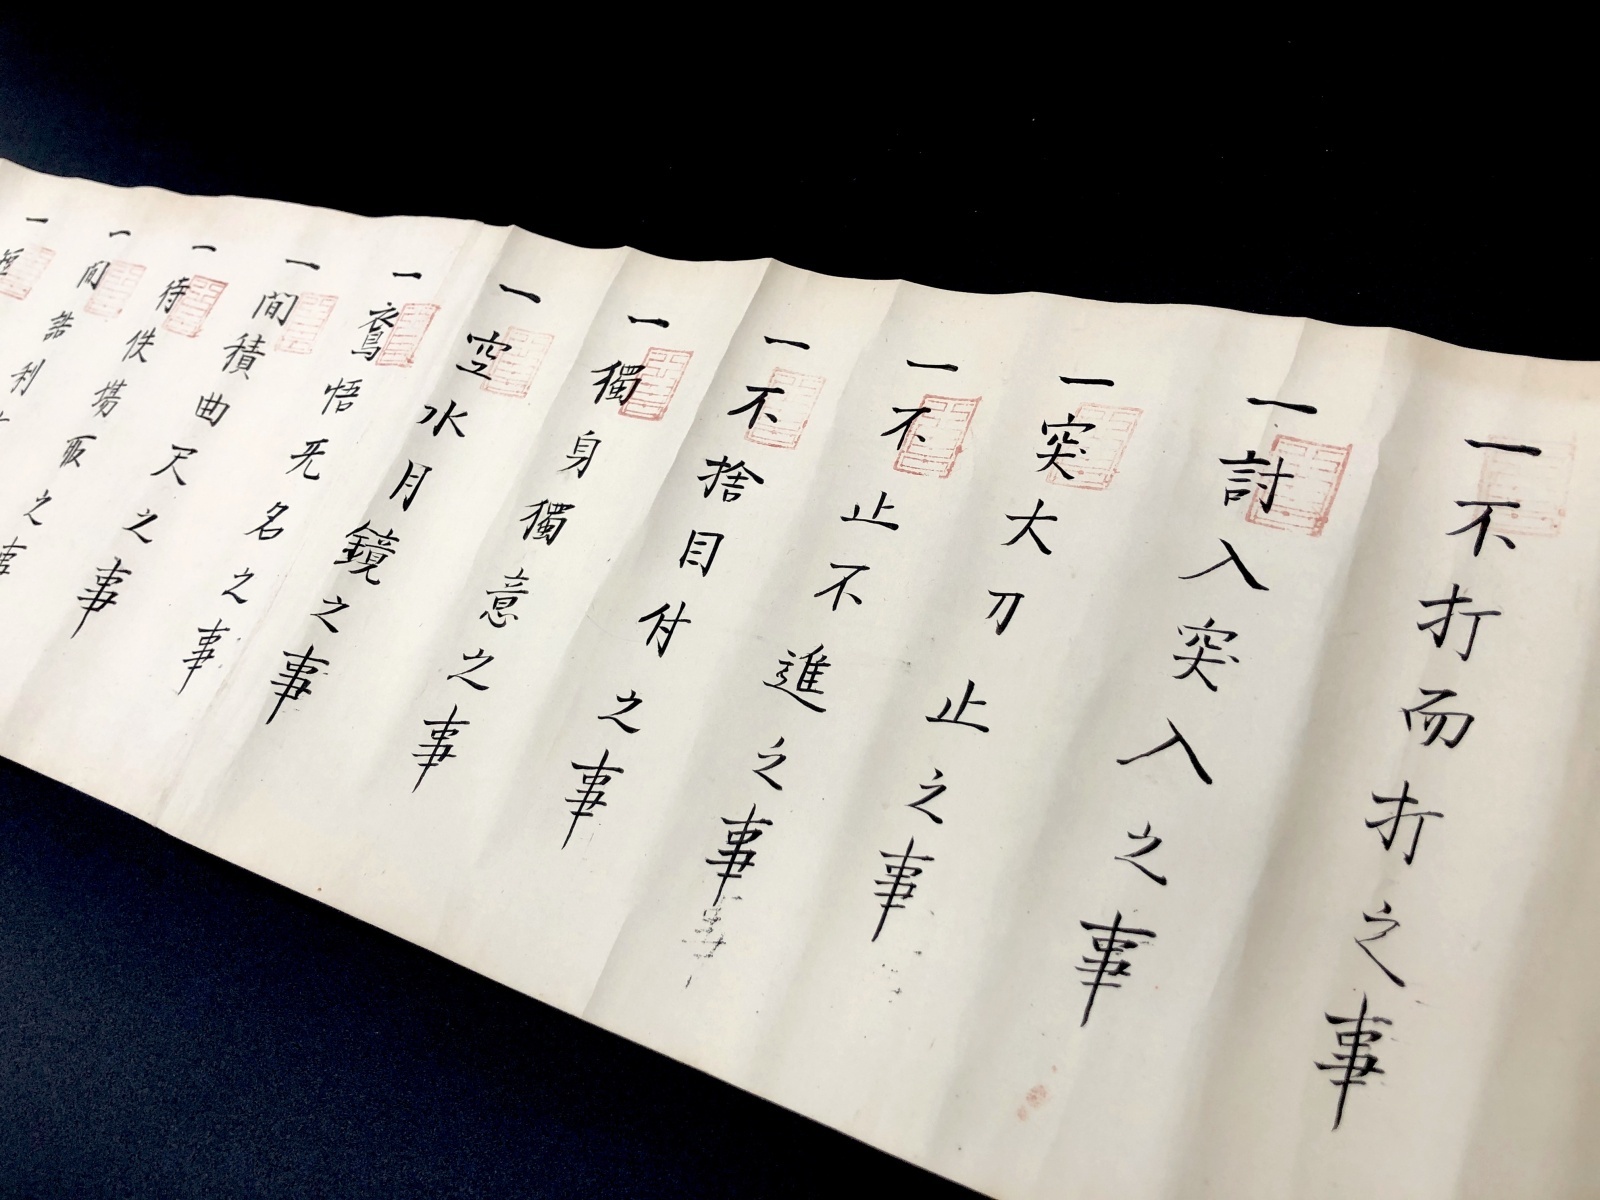 一不打而打之事
一討入突入之事
一突大刀止之事
一不止不進之事
一不捨目付之事
一獨身獨意之事
一空水月鏡之事
一鵞悟旡名之事
一間積曲尺之事
一待佚塲取之事
一間
一